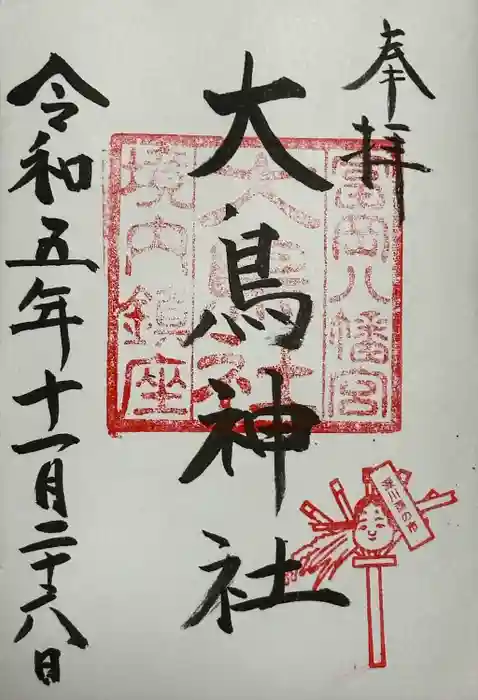 奉拝
大鳥神社
令和五年十一月二十八日
富岡八幡宮
大鳥神社
境内鎮座
深川酉の市